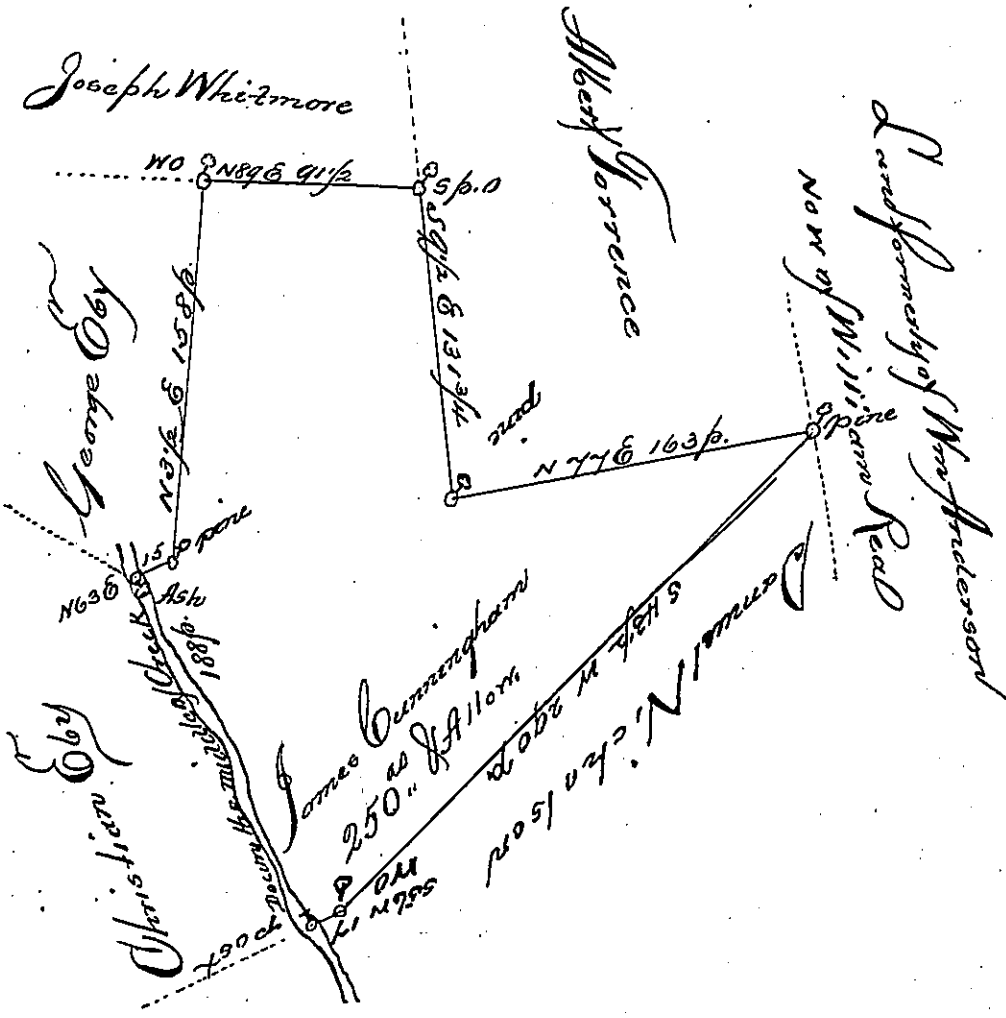 Joseph Whitmore
Albert Torrence
Land formerly of Wm Anderson
Now of William Read
WO
N89E 91½
Sp.O
S5½ E 131¾
pine
N 77 E 163 p.
pine
George Eby
N 3½ E 158 p.
pine
15
N63E
Ash
188 p.
Down the Mudday Creek
Christian Eby
James Cunningham
256 " 0 as & Allow.
S 43½ W 290 p.
Samuel Nicholson
WO
S56W 17
post